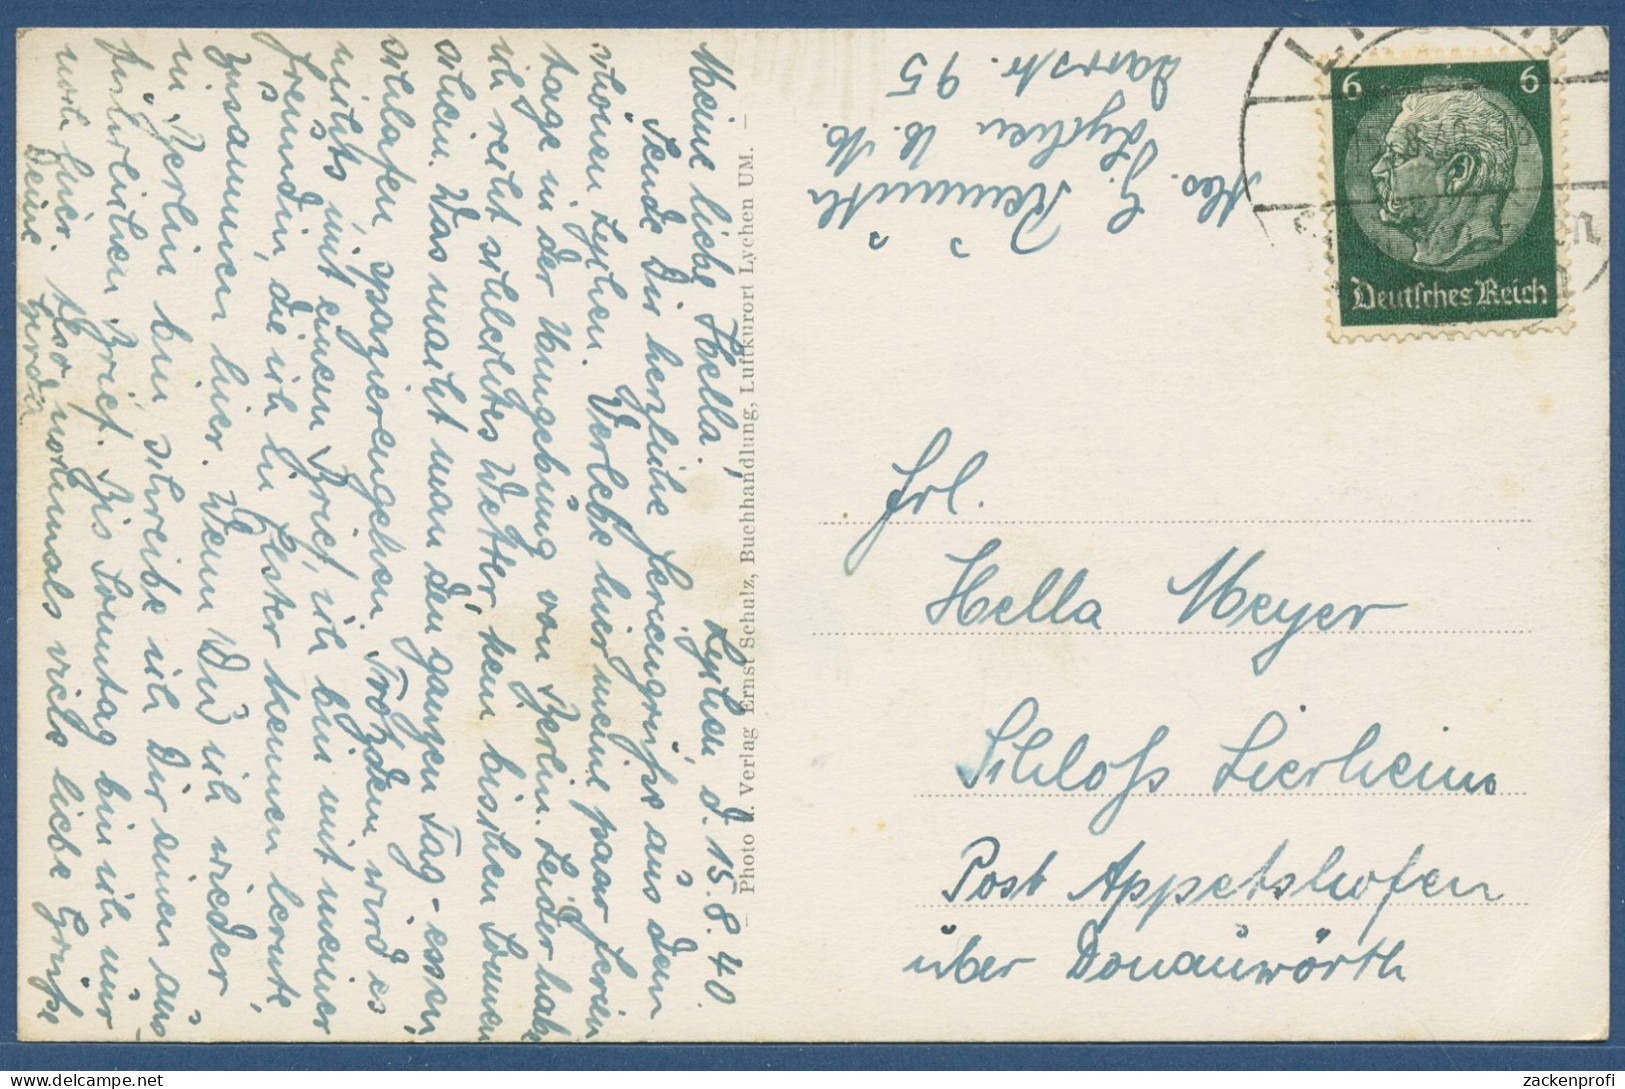 Meine liebe Hella! Lychen, d. 15.8.40.
Sende Dir herzliche Feriengrüße aus dem
schönen Lychen. Verlebe hier meine paar Ferien
tage in der Umgebung von Berlin. Leider habe
ich recht schlechtes Wetter, kein bisschen Sonnen
schein. Was macht man den ganzen Tag - essen,
schlafen, spazierengehen. Trotzdem wird es
nichts mit einem Brief, ich bin mit meiner
Freundin, die ich in Elster kennen lernte,
zusammen hier. Wenn Du ich wieder
in Berlin bin schreibe ich Dir einen aus
führlichen Brief. Bis Sonntag bin ich nur
noch hier. Also nochmals viele liebe Grüße
Deine Gerda
– Photo u. Verlag Ernst Schulz, Buchhandlung, Luftkurort Lychen UM. –
Abs. G.
Lychen U. M.
95
6 6
Deutsches Reich
Frl.
Hella Meyer
Schloß Lierheim
Post Appetshofen
über Donauwörth
zackenprofi